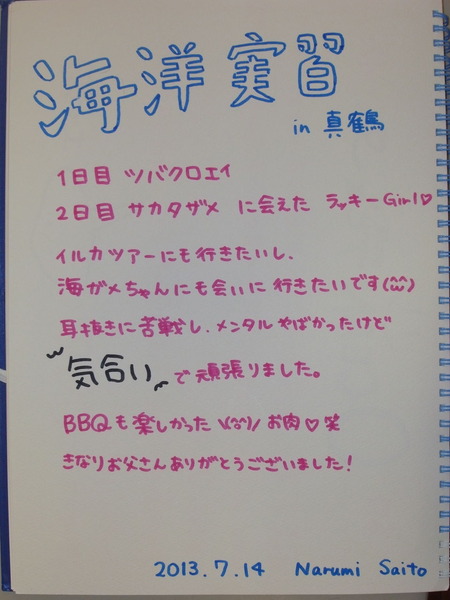 海洋実習
in 真鶴
1日目 ツバクロエイ
2日目 サカタザメ に会えた ラッキーGirl♡
イルカツアーにも行きたいし、
海ガメちゃんにも会いに行きたいです(^ω^)
耳抜きに苦戦し、メンタルやばかったけど
気合い で頑張りました。
BBQも楽しかった \(^o^)/ お肉♡笑
きなりお父さんありがとうございました!
2013.7.14 Narumi Saito